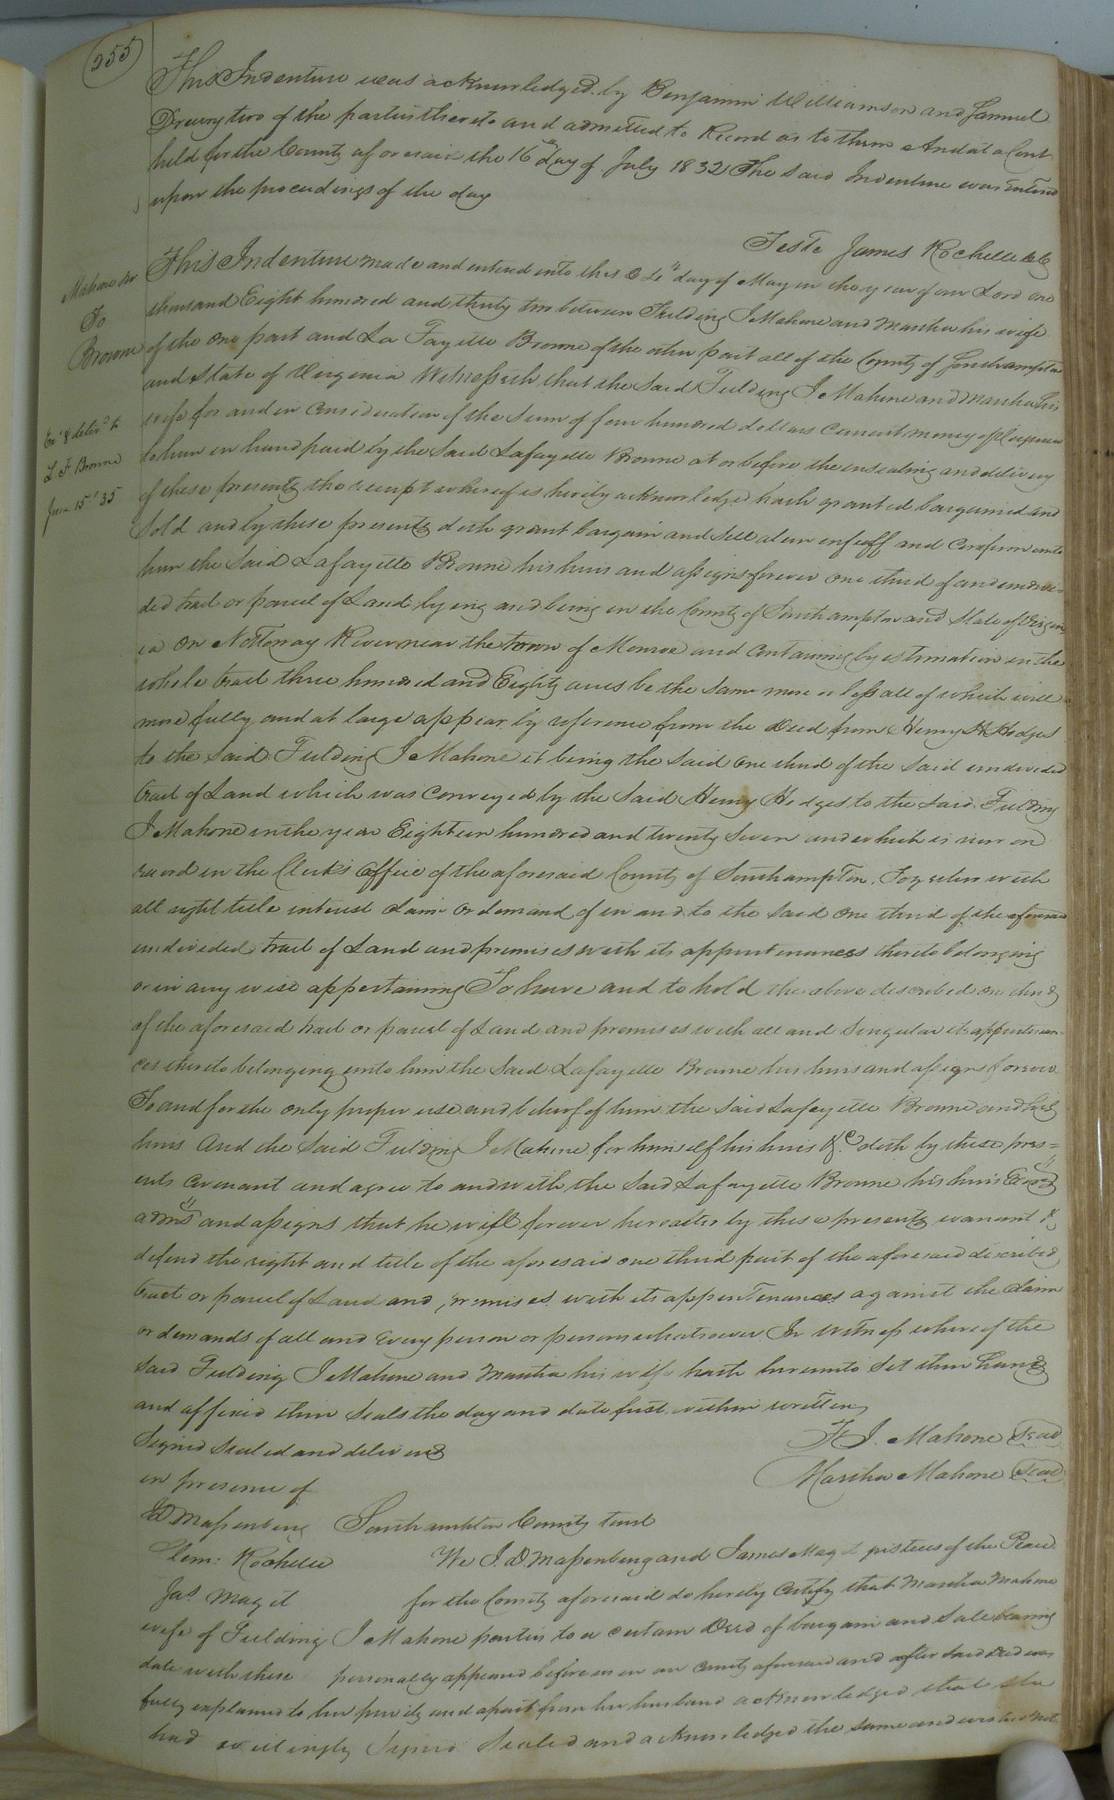 255
This Indenture was acknowledged by Benjamin Williamson and Samuel
Drewry two of the parties thereto and admitted to Record as to them And at a Court
held for the County aforesaid the 16th day of July 1832 The said Indenture was Entered
upon the proceedings of the day
Teste James Rochelle
Mahone &c
To
Browne
Ex'd & deliv'd to
L. F. Browne
June 15th 35
This Indenture made and entered into this day of May in the year of our Lord one
thousand Eight hundred and thirty two between Fielding J Mahone and Martha his wife
of the one part and La Fayette Browne of the other part all of the County of Southampton
and State of Virginia Witnesseth that the said Fielding J Mahone and Martha his
wife for and in Consideration of the Sum of four hundred dollars Current money of
to him in hand paid by the Said Lafayette Browne at or before the ensealing and delivery
of these presents the receipt whereof is hereby acknowledged hath granted bargained and
Sold and by these presents doth grant bargain and Sell alien enfeoff and Confirm unto
him the Said Lafayette Browne his heirs and assigns forever one third of an undivi-
ded tract or parcel of Land lying and being in the County of Southampton and State of Virgin
ia On Nottoway River near the town of Monroe and Containing by estimation in the
whole tract three hundred and Eighty acres be the Same more or less all of which will
more fully and at large appear by reference from the deed from Henry H Hodges
to the said Fielding J Mahone it being the said One third of the said undivided
tract of Land which was Conveyed by the Said Henry Hodges to the said Fielding
J Mahone in the year Eighteen hundred and twenty Seven and which is now on
record in the Clerk's Office of the aforesaid County of Southampton. Together with
all right title interest Claim Or demand of in and to the Said One third of the aforesaid
undivided tract of Land and premises with its appurtenances thereto belonging
or in any wise appertaining To have and to hold the above described one third
of the aforesaid tract or parcel of Land and premises with all and Singular its appurtenan-
ces thereto belonging unto him the Said Lafayette Browne his heirs and assigns forever
To and for the only proper use and behoof of him the Said Lafayette Browne and his
heirs And the Said Fielding J Mahone for himself his heirs &c doth by these pres=
ents Covenant and agree to and with the Said Lafayette Browne his heirs Exors
adms and assigns that he will forever hereafter by these presents warrant &
defend the right and title of the aforesaid one third part of the aforesaid described
tract or parcel of Land and premises with its appurtenances against the Claim
or demands of all and Every person or persons whatsoever In Witness whereof the
Said Fielding J Mahone and Martha his wife hath hereunto Set their hands
and affixed their Seals the day and date first within written
F. J. Mahone Seal
Martha Mahone Seal
Signed Sealed and delivered
in presence of
J D Massenburg
Clem: Rochelle
Jas. Maget
Southampton County to wit
We J. D. Massenburg and James Maget justices of the Peace
for the County aforesaid do hereby Certify that Martha Mahone
wife of Fielding J Mahone parties to a Certain Deed of bargain and Sale bearing
date with these personally appeared before us in our County aforesaid and after said deed was
fully explained to her privily and apart from her husband acknowledged that she
had willingly Signed Sealed and acknowledged the same and wished not